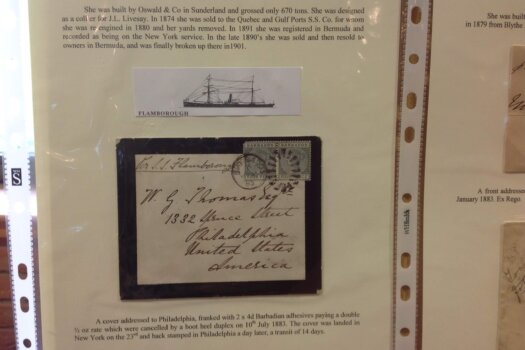 She was built by Oswald & Co in Sunderland and grossed only 670 tons. She was designed
as a collier for J.L. Livesay. In 1874 she was sold to the Quebec and Gulf Ports S.S. Co. for whom
she was reengined in 1880 and her yards removed. In 1891 she was registered in Bermuda and
recorded as being on the New York service. In the late 1890's she was sold and then resold to
owners in Bermuda, and was finally broken up there in1901.
FLAMBOROUGH
Per S.S. Flamborough
BARBADOS BARBADOS
W. G. Thomas Esq
1332 Spruce Street
Philadelphia
United States
America
A cover addressed to Philadelphia, franked with 2 x 4d Barbadian adhesives paying a double
½ oz rate which were cancelled by a boot heel duplex on 10th July 1883. The cover was landed in
New York on the 23rd and back stamped in Philadelphia a day later, a transit of 14 days.
She was built
in 1879 from Blythe
A front addressed
January 1883. Ex Rego.
S